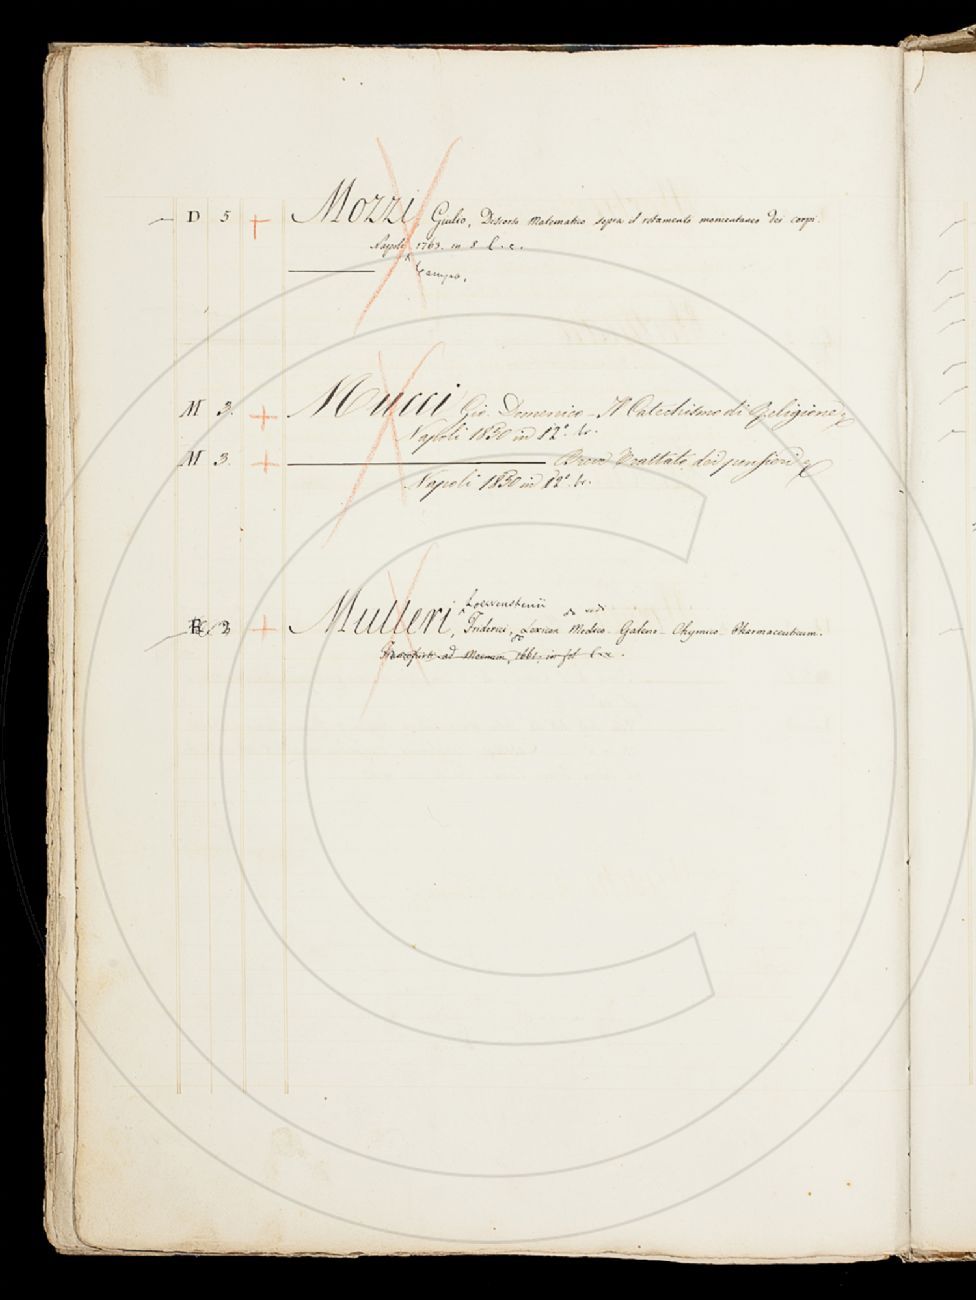 D 5 + Mozzi Giulio, Discorso Matematico sopra il rotamento momentaneo dei corpi.
Napoli 1763. in 8. l. c.
Campo.
M 3. + Mucci Gio. Domenico - Il Catechismo di Religione
Napoli 1830 in 12º. lr.
M 3. + Breve Trattato dei pensieri
Napoli 1830 in 12º. lr.
Loevenstenii
3 + Mulleri, Friderici, Lexicon Medico-Galeno-Chymico-Pharmaceuticum.
ad Moenum, 1661, in fol.